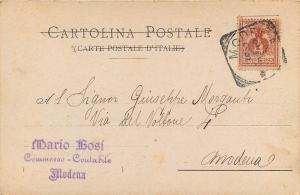 CARTOLINA POSTALE
(CARTE POSTALE D'ITALIE)
MODENA
Al Signor Giuseppe Morganti
Via del Voltone 4
Modena
Mario Bosi
Commerso-Contabile
Modena